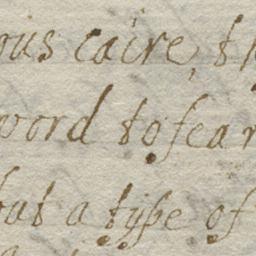 ous caire, th
word to fear
but a type of